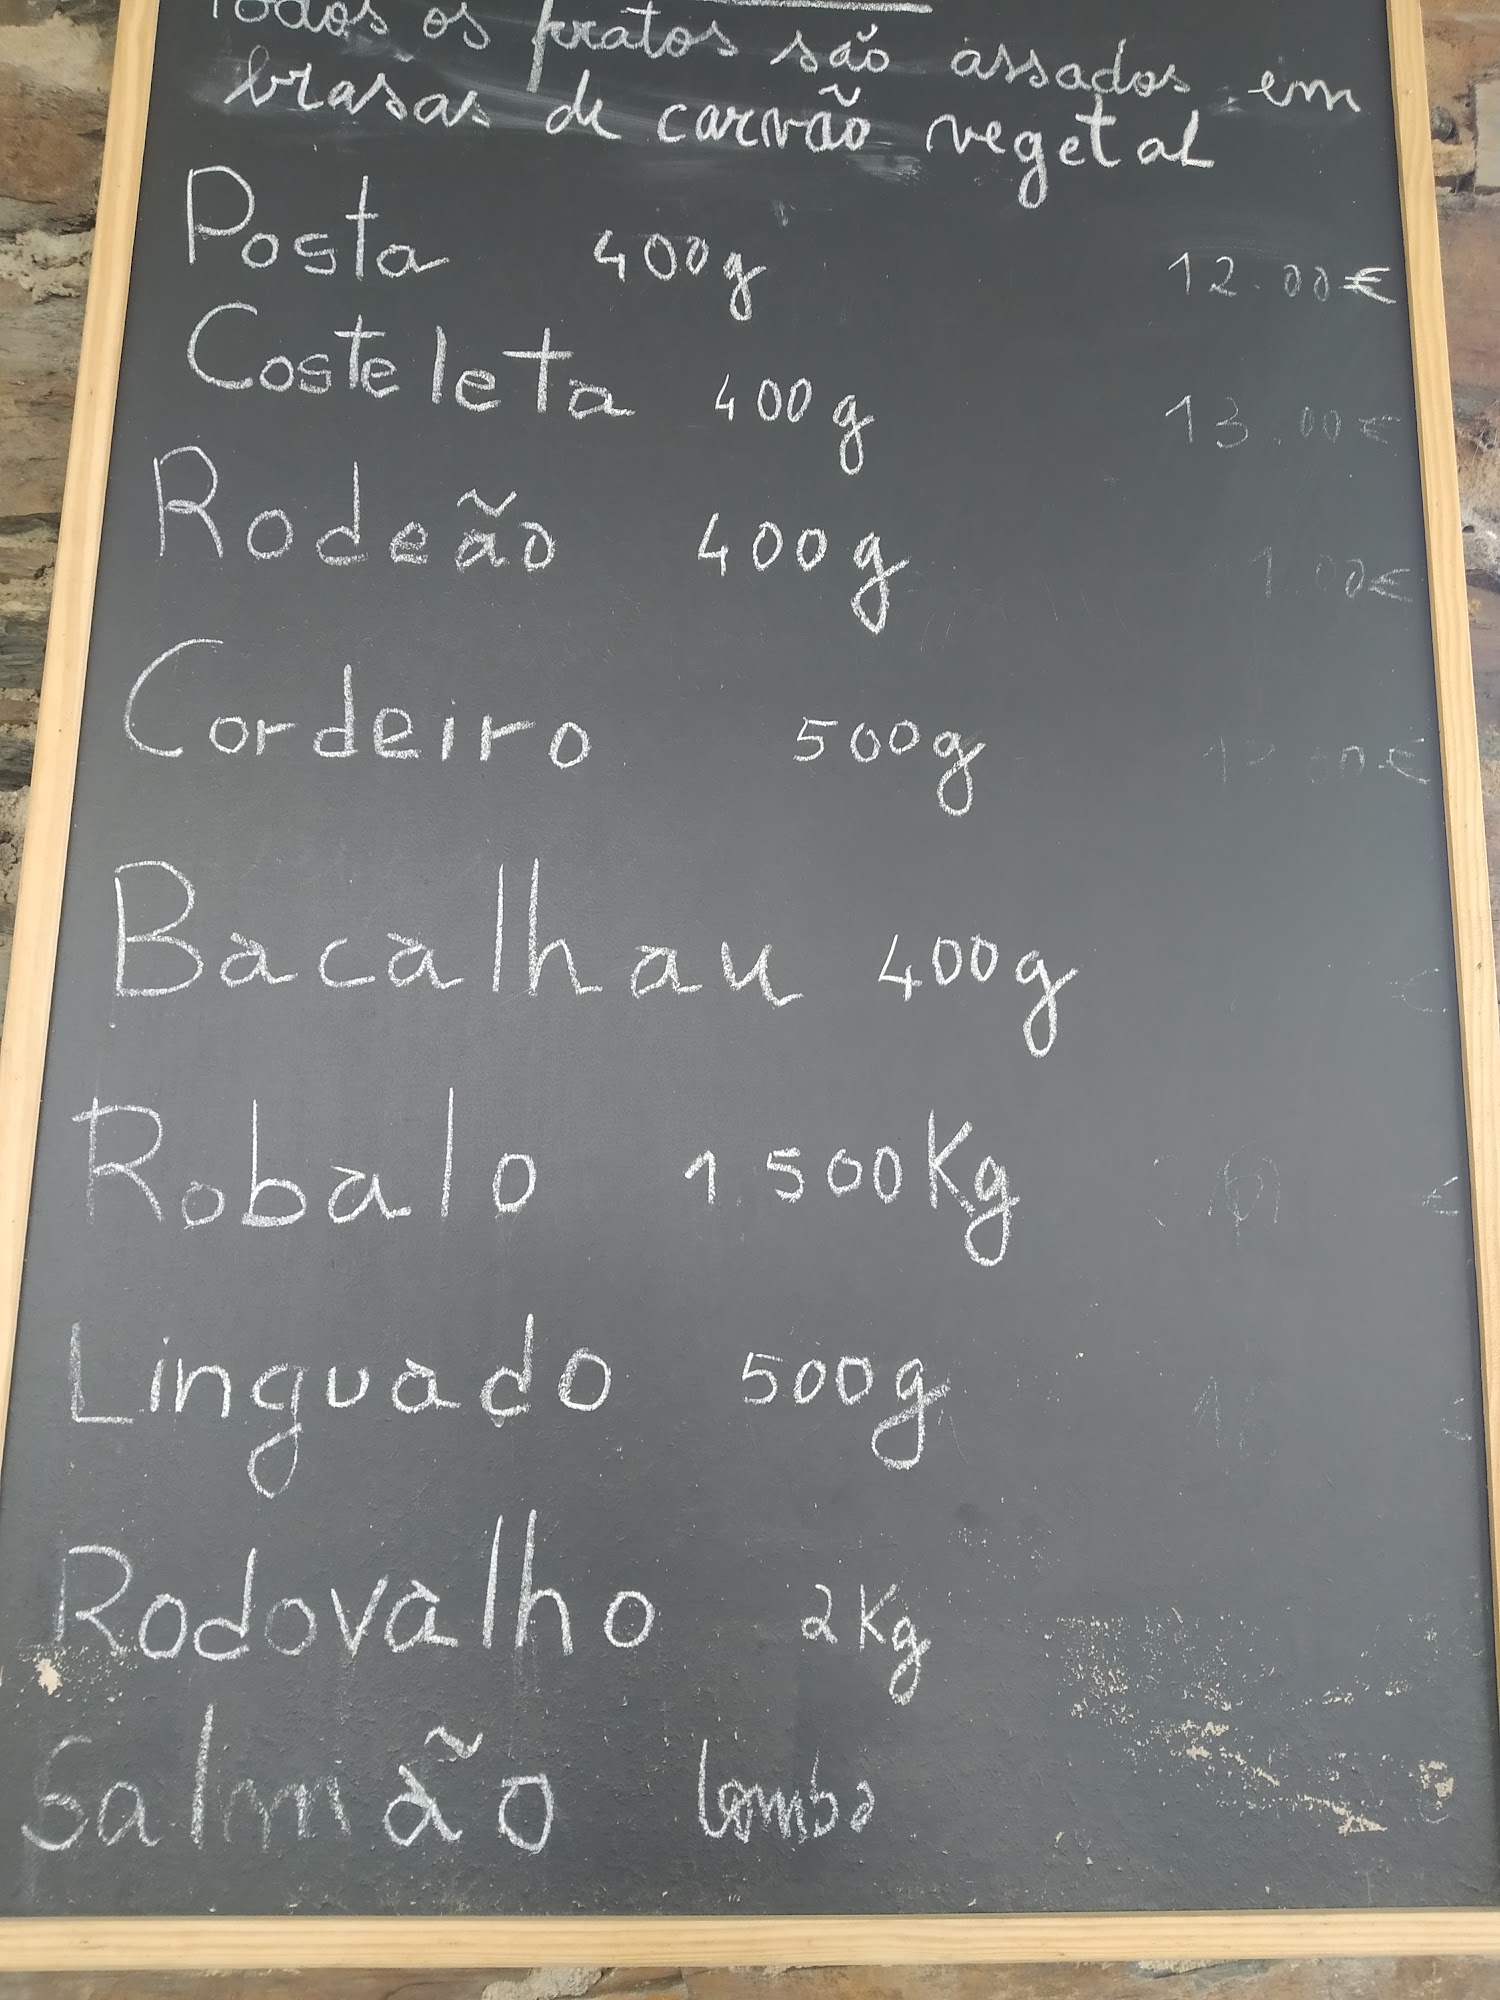 Todos os pratos são assados em
brasas de carvão vegetal
Posta 400g 12.00€
Costeleta 400g 13.00€
Rodeão 400g
Cordeiro 500g
Bacalhau 400g
Robalo 1 500Kg
Linguado 500g
Rodovalho 2Kg
Salmão lombo